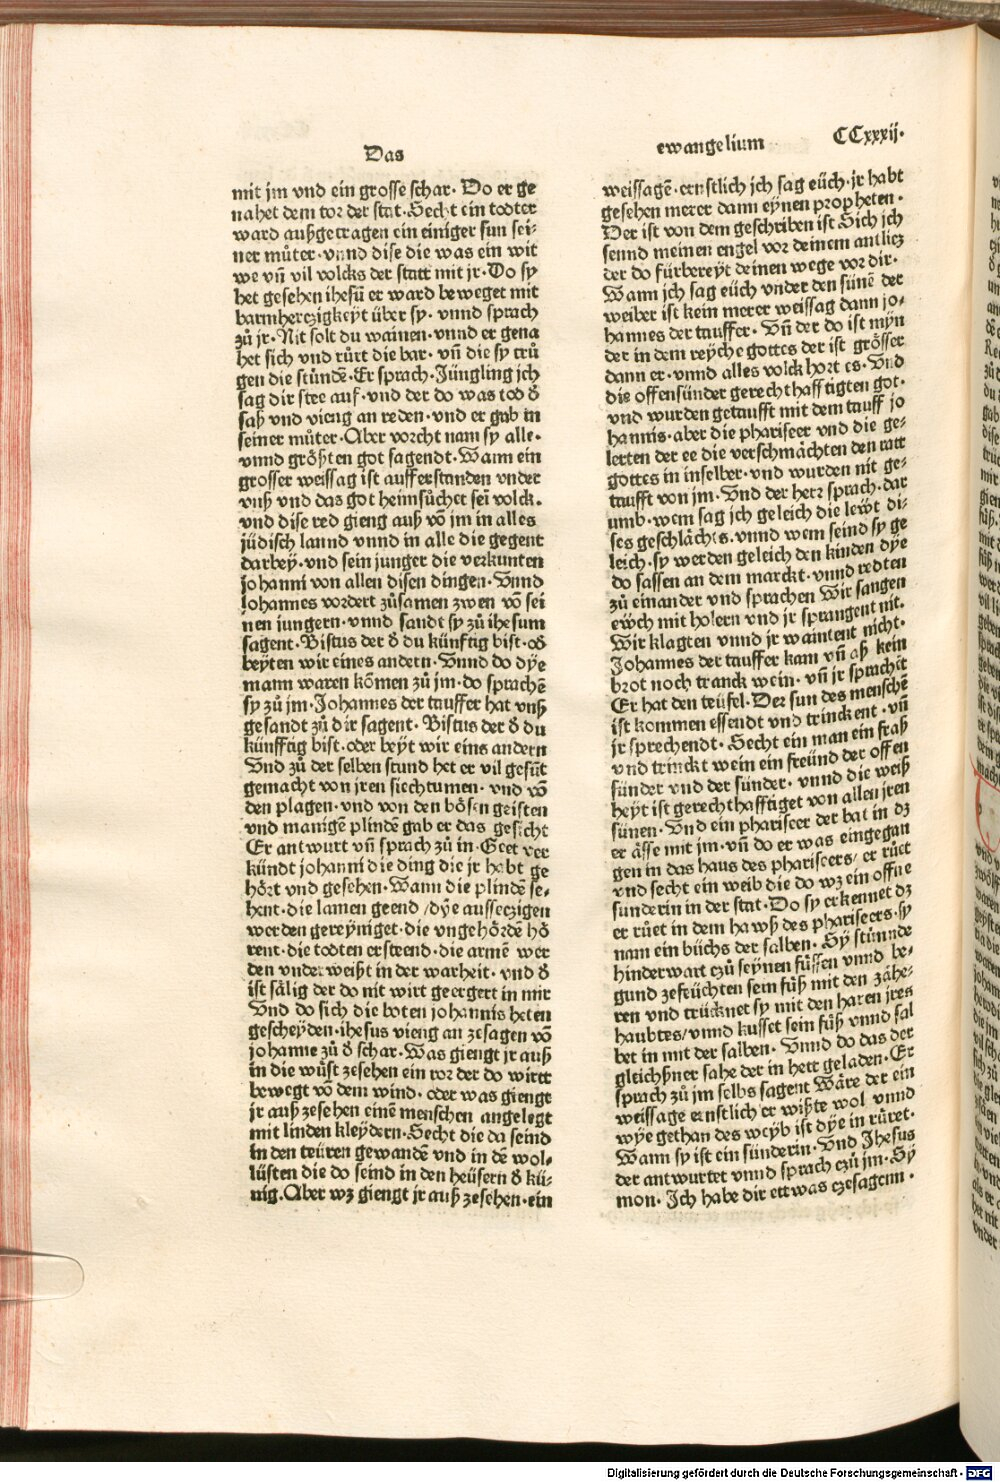 Das
mit jm vnd ein grosse schar. Do er ge
nahet dem tor der stat. Secht ein todter
ward außgetragen ein einiger sun sei-
ner můter. vnnd dise die was ein wit
we vñ vil volcks der statt mit jr. Do sy
het gesehen ihesū er ward beweget mit
barmherczigkeyt über sy. vnnd sprach
zů jr. Nit solt du wainen. vnnd er gena
het sich vnd růrt die bar. vñ die sy trů
gen die stůndē. Er sprach. Jüngling jch
sag dir stee auf. vnd der do was tod d̕
saß vnd vieng an reden. vnd er gab in
seiner můter. Aber vorcht nam sy alle.
vnnd größten got sagendt. Wann ein
grosser weissag ist aufferstanden vnder
vnß vnd das got heimsůchet sei volck.
vnd dise red gieng auß vō jm in alles
jüdisch lannd vnnd in alle die gegent
darbey. vnd sein junger die verkunten
johanni von allen disen dingen. Vnnd
Johannes vordert zůsamen zwen vō sei
nen jungern. vnnd sandt sy zů ihesum
sagent. Bistus der d̕ du künftig bist. od̕
beyten wir eines andern. Vnnd do dÿe
mann waren kōmen zů jm. do sprachē
sy zů jm. Johannes der tauffer hat vnß
gesandt zů dir sagent. Bistus der d̕ du
künfftig bist. oder beyt wir eins andern
Vnd zů der selben stund het er vil gesūt
gemacht von jren siechtumen. vnd vō
den plagen. vnd von den bösen geisten
vnd manigē plindē gab er das gesicht
Er antwurt vñ sprach zů in. Geet ver
kündt johanni die ding die jr habt ge
hört vnd gesehen. Wann die plindē se-
hent. die lamen geend/dÿe aussecZigen
werden gereyniget. die vngehördē hö
rent. die todten ersteend. die armē wer
den vnderweißt in der warheit. vnd d̕
ist sälig der do nit wirt geergert in mir
Vnd do sich die boten johannis heten
gescheyden. ihesus vieng an zesagen vō
johanne zů d̕ schar. Was giengt jr auß
in die wůst zesehen ein ror der do wirt
bewegt vō dem wind. oder was giengt
jr auß zesehen einē menschen angelegt
mit linden kleydern. Secht die da seind
in den teüren gewandē vnd in dē wol-
lüsten die do seind in den heüsern d̕ kü-
nig. Aber wz giengt jr auß zesehen. ein
ewangelium CCxxxij.
weissagē. ernstlich jch sag eüch. jr habt
gesehen merer dann eynen propheten.
Der ist von dem geschriben ist Sich jch
sennd meinen engel vor deinem antlicz
der do fürbereyt deinen wege vor dir.
Wann jch sag eüch vnder den sünē der
weiber ist kein merer weissag dann jo-
hannes der tauffer. Vñ der do ist mÿn
der in dem reyche gottes der ist grösser
dann er. vnnd alles volck hort es. Vnd
die offensünder gerechthafftigten got.
vnd wurden getaufft mit dem tauff jo
hannis. aber die phariseer vnd die ge-
lerten der ee die verschmächten den ratt
gottes in inselber. vnd wurden nit ge-
taufft von jm. Vnd der herr sprach. dar
umb. wem sag jch geleich die lewt di-
ses geschlächts. vnnd wem seind sy ge
leich. sy werden geleich den kinden dÿe
do sassen an dem marckt. vnnd redten
zů einander vnd sprachen Wir sangen
ewch mit holern vnd jr sprangent nit.
Wir klagten vnnd jr waintent nicht.
Johannes der tauffer kam vñ aß kein
brot noch tranck wein. vñ jr sprachēt
Er hat den teüfel. Der sun des menschē
ist kommen essendt vnd trinckent. vñ
jr sprechendt. Secht ein man ein fraß
vnd trinckt wein ein freünd der offen
sünder vnd der sünder. vnnd die weiß
heyt ist gerechthafftiget von allen jren
sünen. Vnd ein phariseer der bat in dz
er ässe mit jm. vñ do er was eingegan
gen in das haus des phariseers/ er růet
vnd secht ein weib die do wz ein offne
sunderin in der stat. Do sy erkennet dz
er růet in dem hawß des phariseers. sy
nam ein büchs der salben. Sy stůnnde
hinderwart czů seynen füssen vnnd be-
gund zefeüchten sein füß mit den zähe-
ren vnd trücknet sy mit den haren jres
haubtes/ vnnd kusset sein füß vnnd sal
bet in mit der salben. Vnnd do das der
gleichßner sahe der in hett geladen. Er
sprach zů jm selbs sagent Wäre der ein
weissage ernstlich er wißte wol vnnd
wÿe gethan des weyb ist dÿe in růret.
Wann sy ist ein sünderin. Vnd Jhesus
der antwurtet vnnd sprach czů jm. Sy
mon. Jch habe dir ettwas czesagenn.
Digitalisierung gefördert durch die Deutsche Forschungsgemeinschaft - DFG